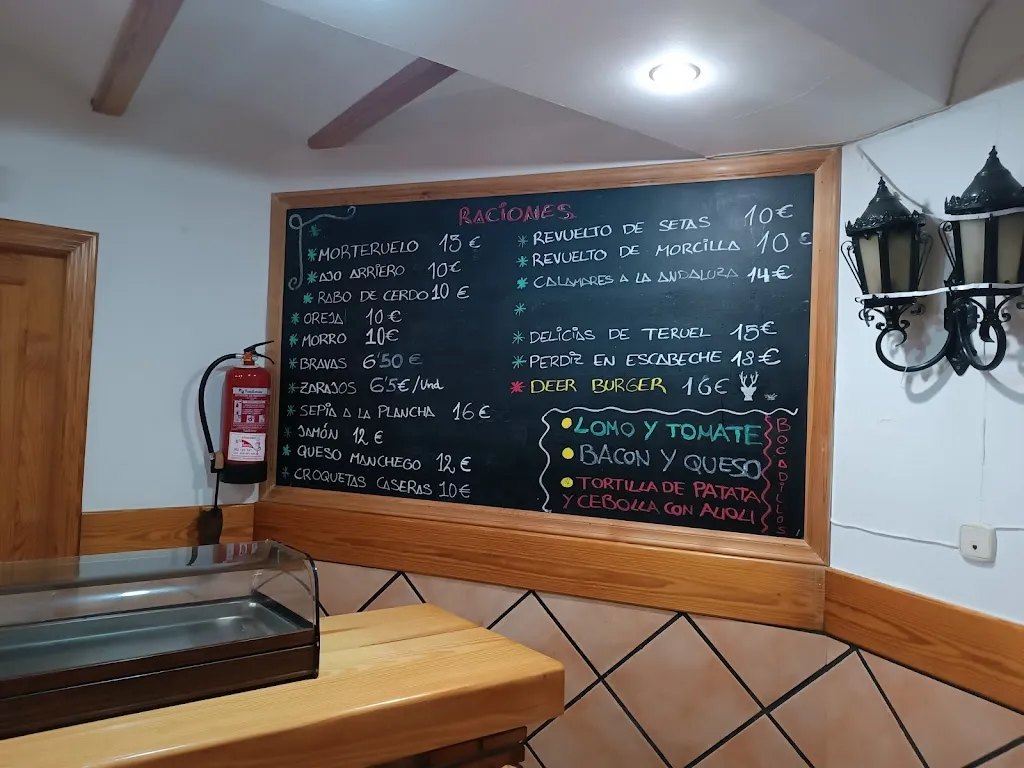 RACIONES
MORTERUELO 13 €
AJO ARRIERO 10€
RABO DE CERDO 10 €
OREJA 10 €
MORRO 10€
BRAVAS 6'50 €
ZARAJOS 6'5€/Und
SEPIA A LA PLANCHA 16 €
JAMÓN 12 €
QUESO MANCHEGO 12 €
CROQUETAS CASERAS 10€
REVUELTO DE SETAS 10€
REVUELTO DE MORCILLA 10 €
CALAMARES A LA ANDALUZA 14€
DELICIAS DE TERUEL 15€
PERDIZ EN ESCABECHE 18€
DEER BURGER 16€
LOMO Y TOMATE
BACON Y QUESO
TORTILLA DE PATATA
Y CEBOLLA CON ALIOLI
BOCADILLOS